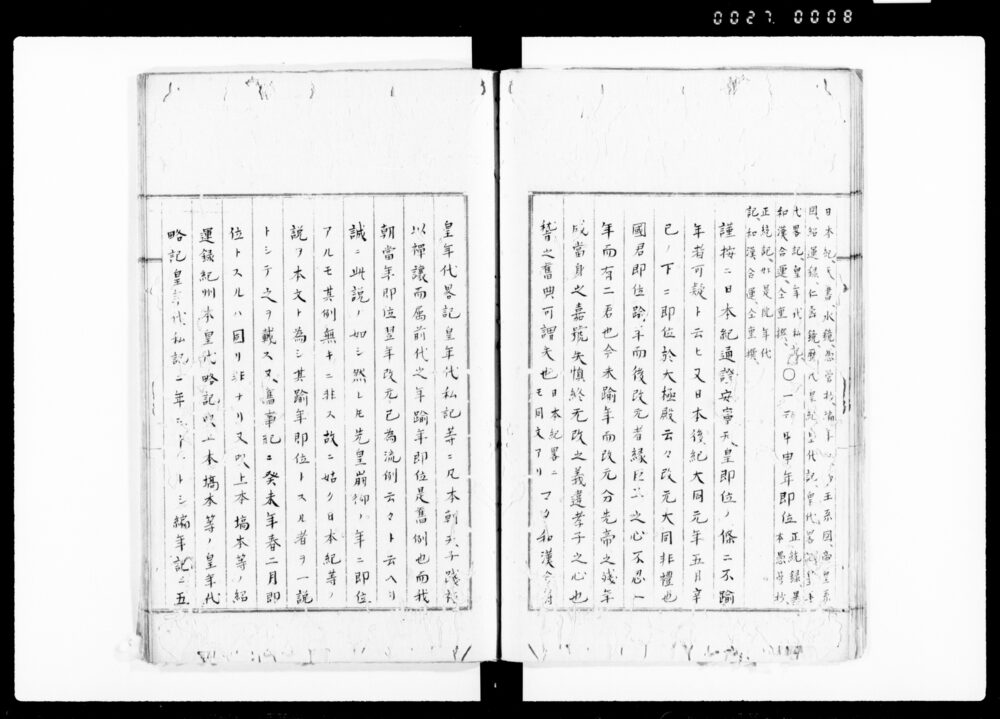 0027 0008
日本紀、天書、水鏡、愚管抄、王系図、帝皇系
図、紹運録、仁寿鏡、歴代皇紀、皇代記、皇代畧記、年
代畧記、皇年代私記、○一云甲申年即位 正統録異
和漢合運、全重撰、 本愚管抄、
正統記、如是院年代
記、和漢合運、全重撰、
謹按ニ日本紀通證安寧天皇即位ノ條ニ不踰
年者可疑ト云ヒ又日本後紀大同元年五月辛
巳ノ下ニ即位於大極殿云々改元大同非禮也
國君即位踰年而後改元者縁臣子之心不忍一
年而有二君也今未踰年而改元分先帝之残年
成當身之嘉號失慎終无改之義違孝子之心也
稽之舊典可謂失也 日本紀畧ニ
モ同文アリ マタ和漢合符
皇年代畧記皇年代私記等ニ凡本朝天子踐祚
以禅讓而属前代之年踰年即位是舊例也而我
朝當年即位翌年改元已為流例云々ト云ヘリ
誠ニ此説ノ如シ然レ𪜈先皇崩御ノ年ニ即位
アルモ其例無キニ非ス故ニ姑ク日本紀等ノ
説ヲ本文ト為シ其踰年即位トスル者ヲ一説
トシテ之ヲ載ス又舊事紀ニ癸未年春二月即
位トスルハ同リ非ナリ又吹上本塙本等ノ紹
運録紀州本皇代略記吹上本塙本等ノ皇年代
略記皇年代私記ニ年トシ編年記ニ五